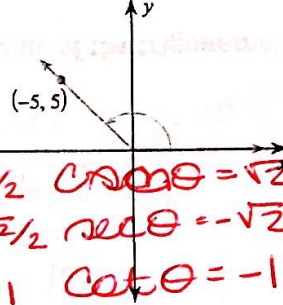 y
(-5, 5)
/2 cscθ = √2
/2 secθ = -√2
1 cotθ = -1